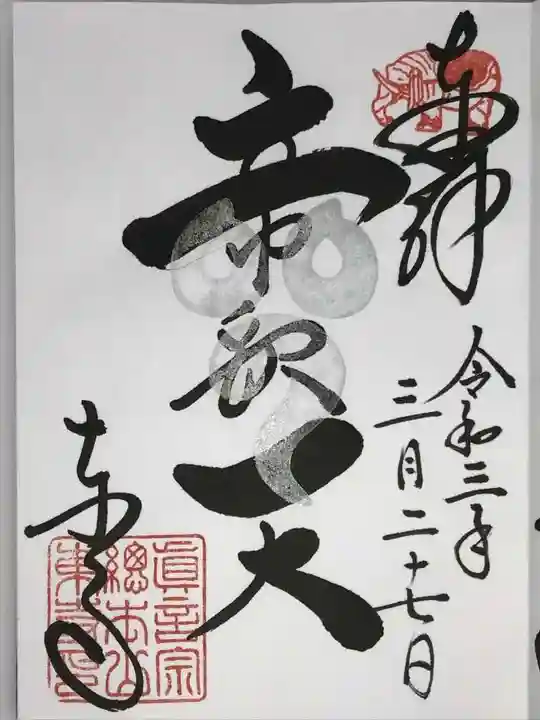 奉拝
令和三年
三月二十七日
帝釈天
東寺
眞言宗
總本山